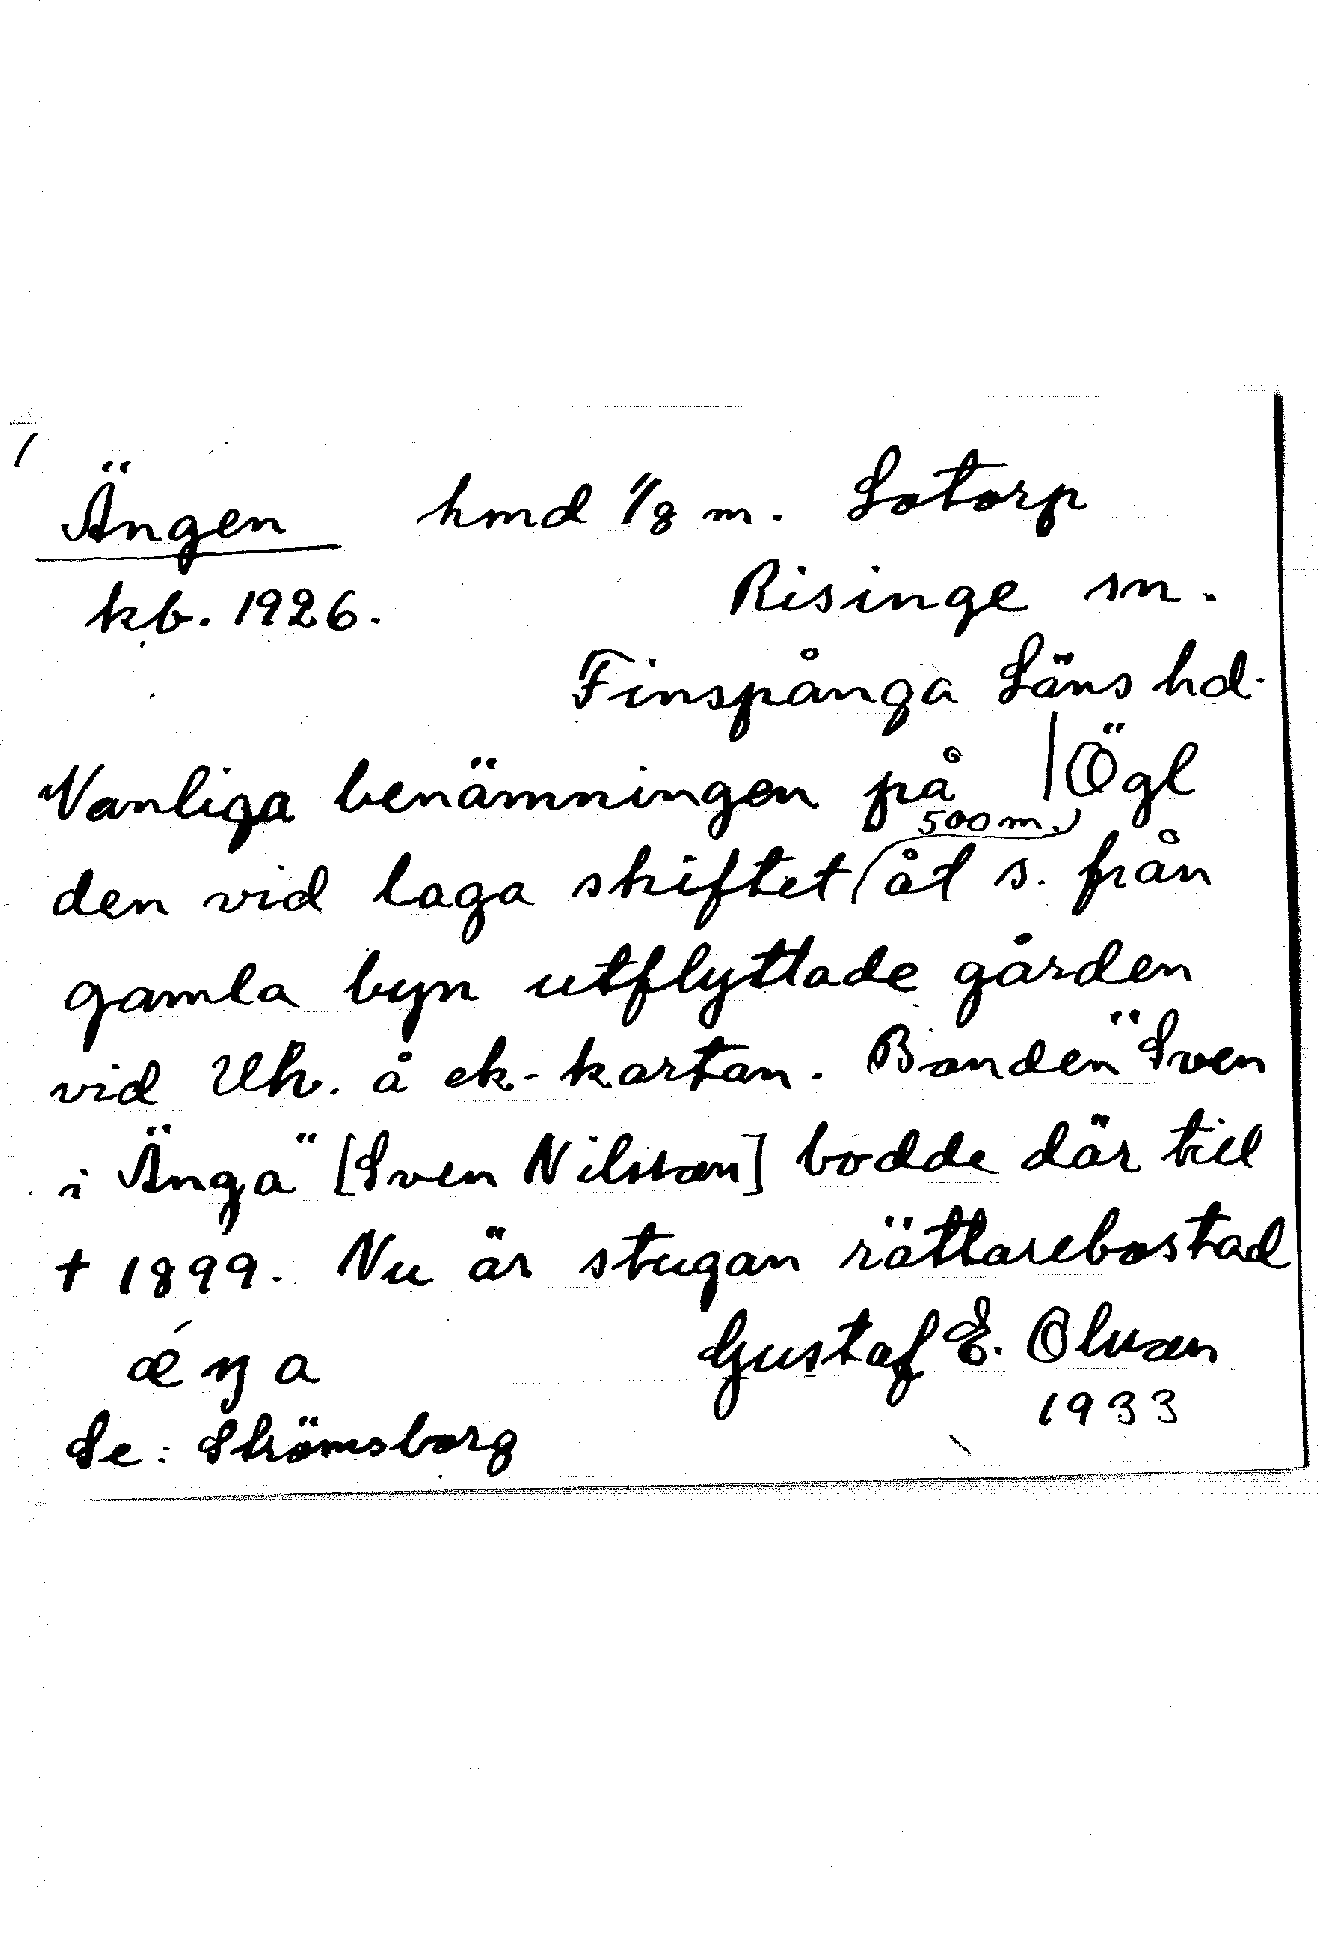 Ängen hmd 1/8 m. Lotorp
kb. 1926. Risinge sn.
Finspånga Läns hd.
Vanliga benämningen på | Ögl
500 m.
den vid laga skiftet åt s. från
gamla byn utflyttade gården
vid Uh. å ek-kartan. Bonden "Sven
i Änga" [Sven Nilsson] bodde där till
† 1899. Nu är stugan rättarebostad
ǽŋa Gustaf E. Olsson
1933
Se: Strömsborg